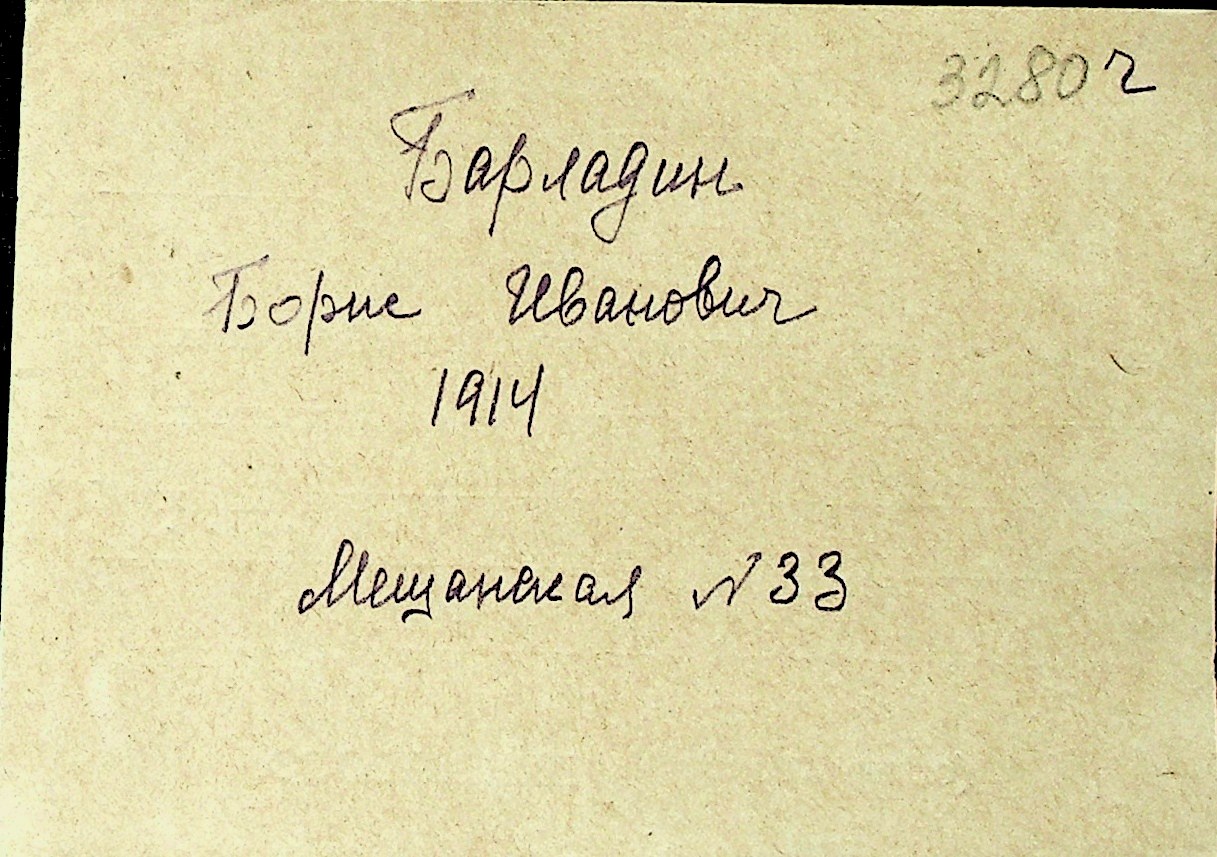 3280 ч
Барладин
Борис Иванович
1914
Мещанская N 33